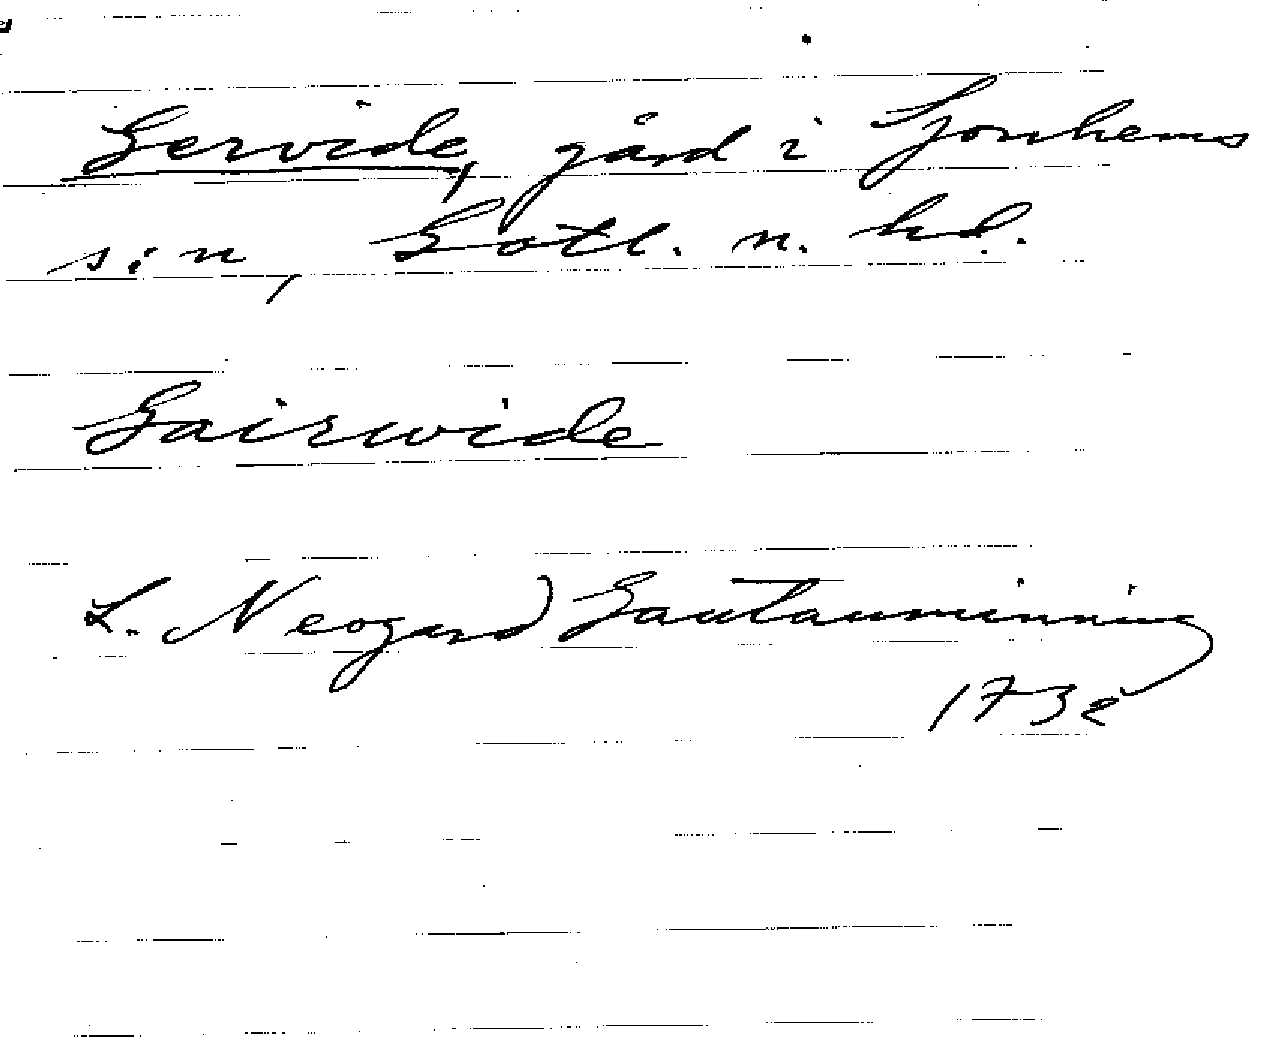 Gervide, gård i Sjonhems
sin, Gotl. n. hd.
Gairwide
L. Neogard) Gautauminning
1732